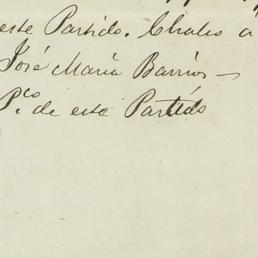 este Partido. Chales á
José María Barrios —
P.co de este Partido